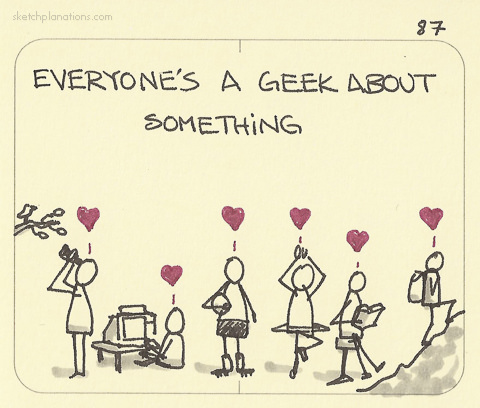 sketchplanations.com
87
EVERYONE'S A GEEK ABOUT
SOMETHING